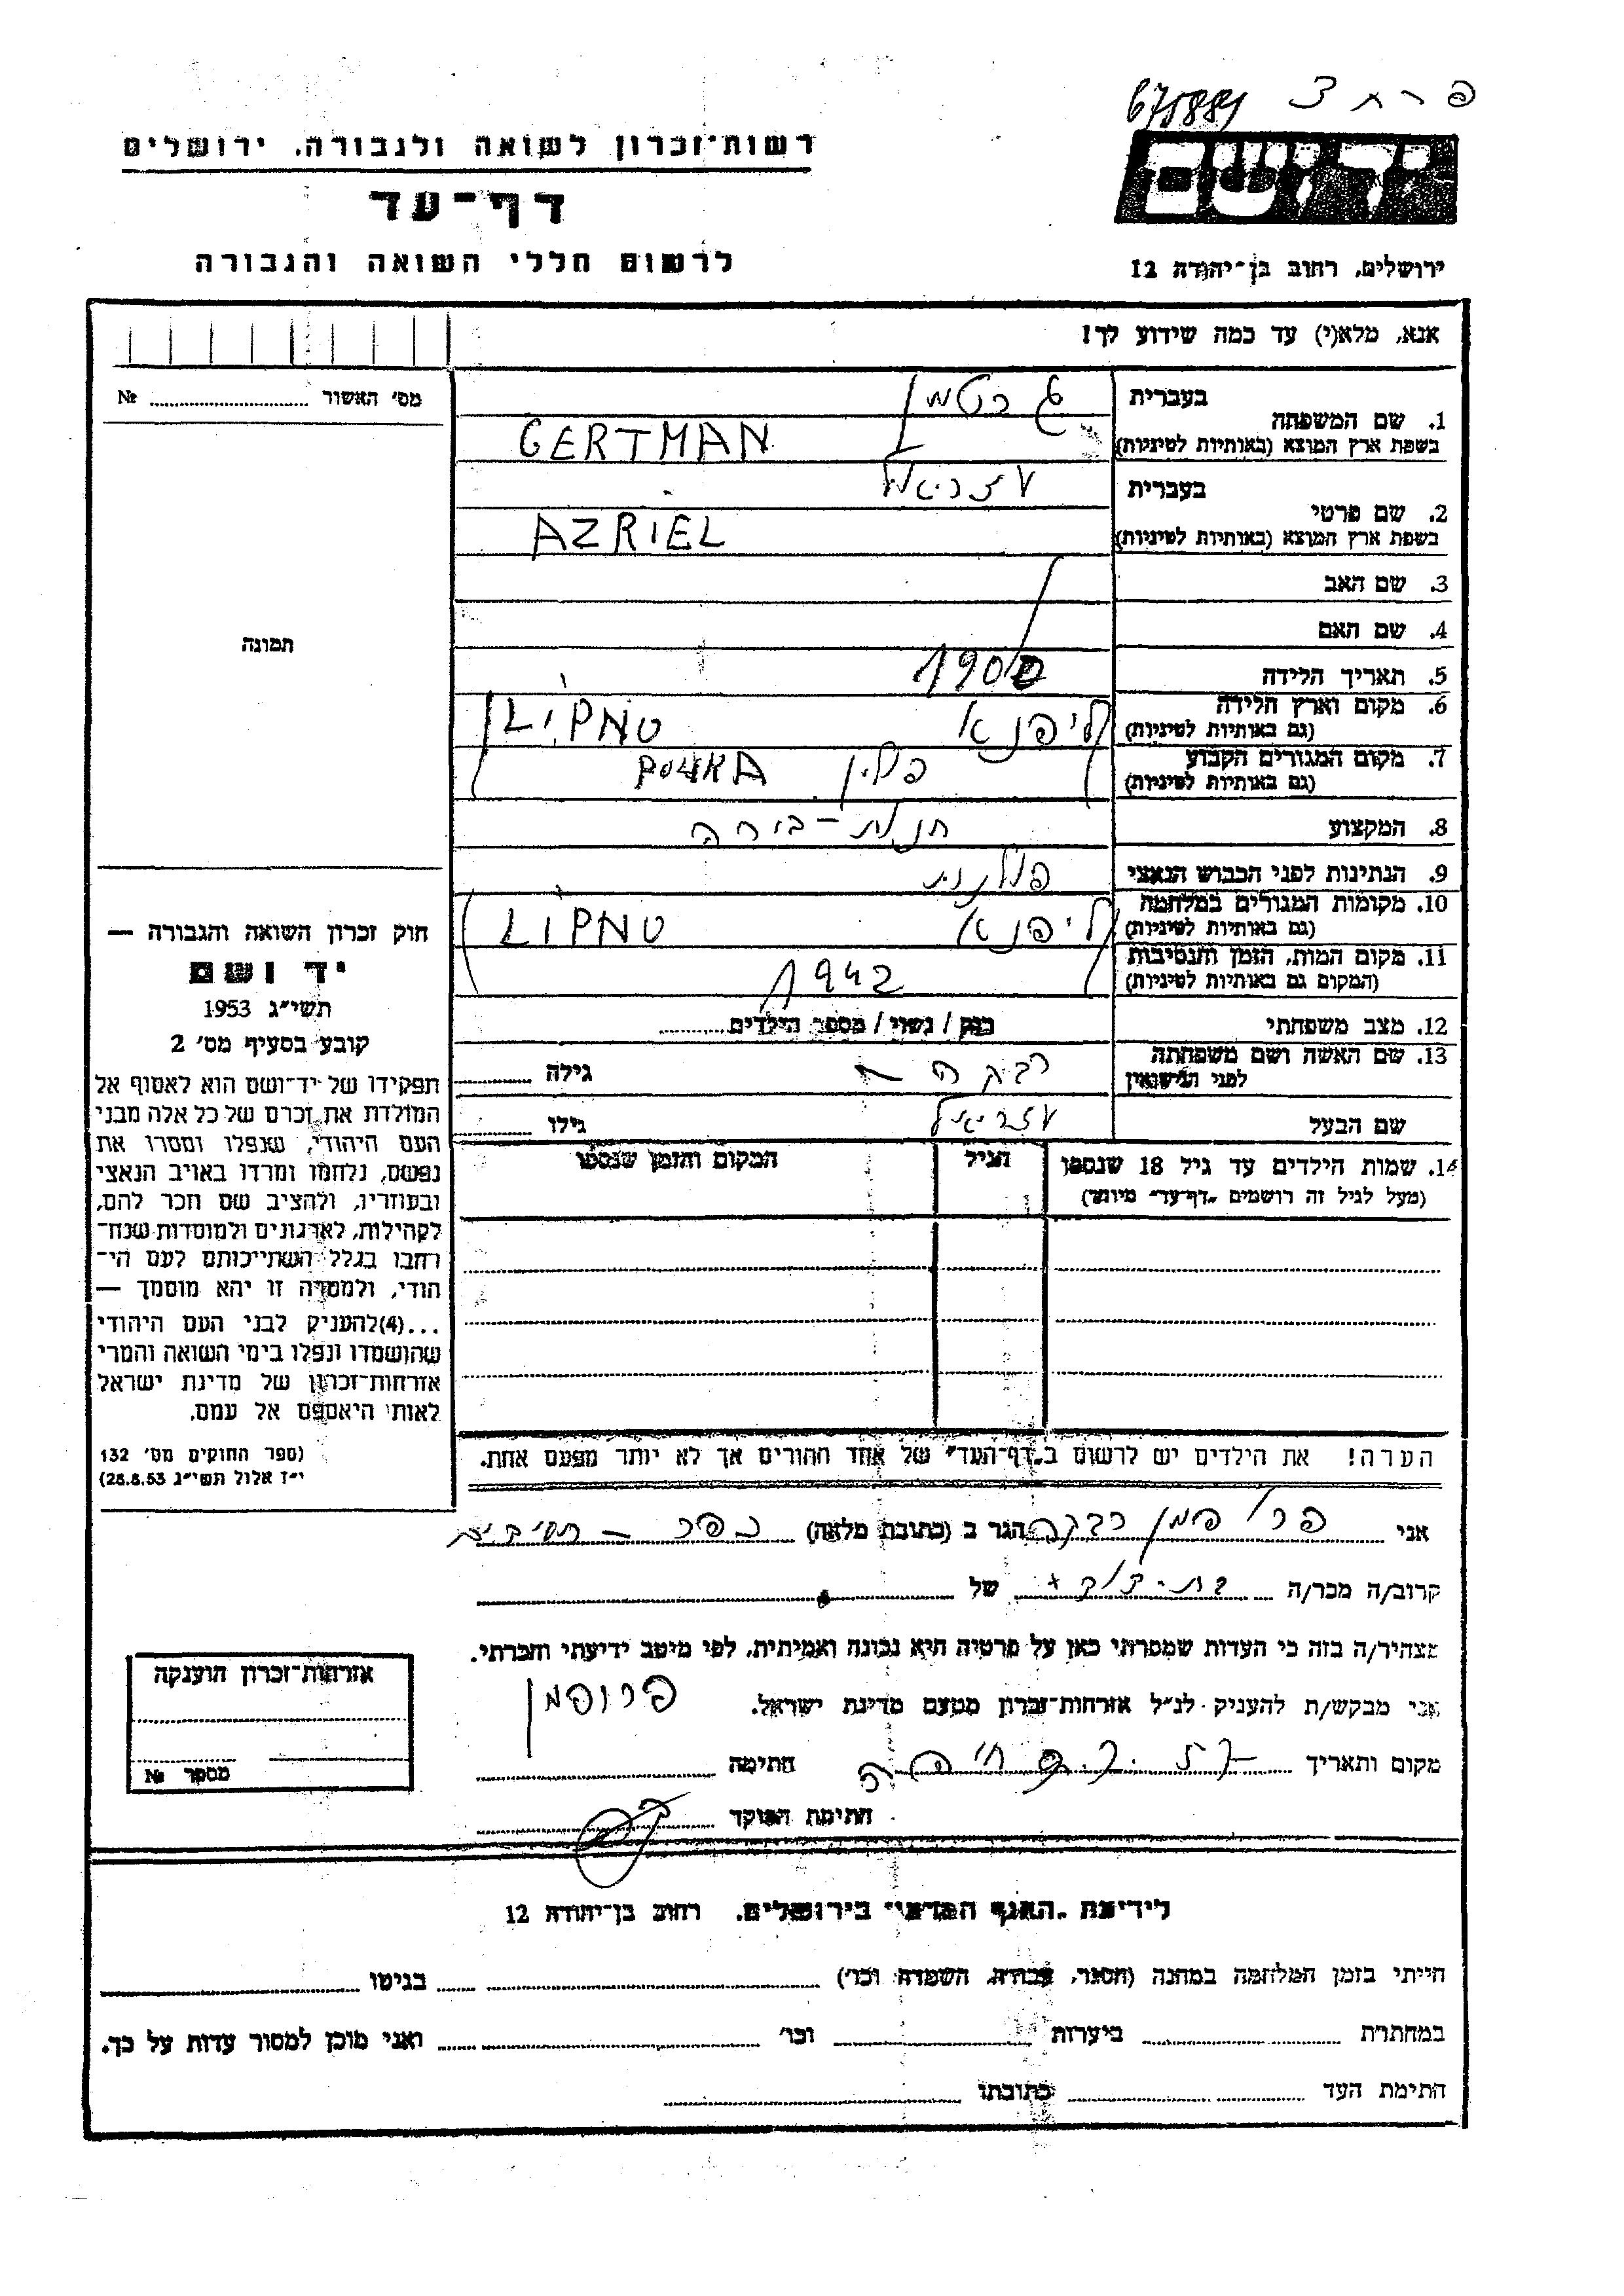 675889
רשות־זכרון לשואה ולגבורה, ירושלים
דף־עד
לרשום חללי השואה והגבורה
יד ושם
ירושלים, רחוב בן־יהודה 12
אנא, מלא(י) עד כמה שידוע לך!
מס׳ האשור № 
1. שם המשפחה
בעברית גרטמן
בשפת ארץ המוצא (באותיות לטיניות) GERTMAN
2. שם פרטי
בעברית עזריאל
בשפת ארץ המוצא (באותיות לטיניות) AZRIEL
3. שם האב
4. שם האם
תמונה
5. תאריך הלידה
6. מקום וארץ הלידה
(גם באותיות לטיניות) ליפנא LIPNO
7. מקום המגורים הקבוע
(גם באותיות לטיניות) פולין
8. המקצוע חנות-בירה
9. הנתינות לפני הכבוש הנאצי פולנית
10. מקומות המגורים במלחמה
(גם באותיות לטיניות) ליפנא LIPNO
11. מקום המות, הזמן והנסיבות
(המקום גם באותיות לטיניות) 1942
12. מצב משפחתי רוק / נשוי / מספר הילדים
13. שם האשה ושם משפחתה
לפני הנישואין רבקה גילה
שם הבעל עזריאל גילו
14. שמות הילדים עד גיל 18 שנספו הגיל המקום והזמן שנספו
(מעל לגיל זה רושמים „דף־עד״ מיוחד)
חוק זכרון השואה והגבורה —
יד ושם
תשי״ג 1953
קובע בסעיף מס׳ 2
תפקידו של יד־ושם הוא לאסוף אל
המולדת את זכרם של כל אלה מבני
העם היהודי, שנפלו ומסרו את
נפשם, נלחמו ומרדו באויב הנאצי
ובעוזריו, ולהציב שם וזכר להם,
לקהילות, לארגונים ולמוסדות שנח־
רבו בגלל השתייכותם לעם הי־
הודי, ולמטרה זו יהא מוסמך —
...(4)להעניק לבני העם היהודי
שהושמדו ונפלו בימי השואה והמרי
אזרחות־זכרון של מדינת ישראל
לאות היאספם אל עמם.
(ספר החוקים מס׳ 132
י״ז אלול תשי״ג 28.8.53)
הערה! את הילדים יש לרשום ב„דף־העד״ של אחד ההורים אך לא יותר מפעם אחת.
אני רבקה הגר ב (כתובת מלאה) כפר
קרוב/ה מכר/ה של
מצהיר/ה בזה כי העדות שמסרתי כאן על פרטיה היא נכונה ואמיתית, לפי מיטב ידיעתי והכרתי.
אני מבקש/ת להעניק לנ״ל אזרחות־זכרון מטעם מדינת ישראל.
מקום ותאריך חיפה חתימה
חתימת הפוקד
אזרחות־זכרון הוענקה
מספר №
לידיעת „האגף המדעי״ בירושלים, רחוב בן־יהודה 12
הייתי בזמן המלחמה במחנה (הסגר, עבודה, השמדה וכו׳) בגיטו
במחתרת ביערות וכו׳ ואני מוכן למסור עדות על כך.
חתימת העד כתובתו